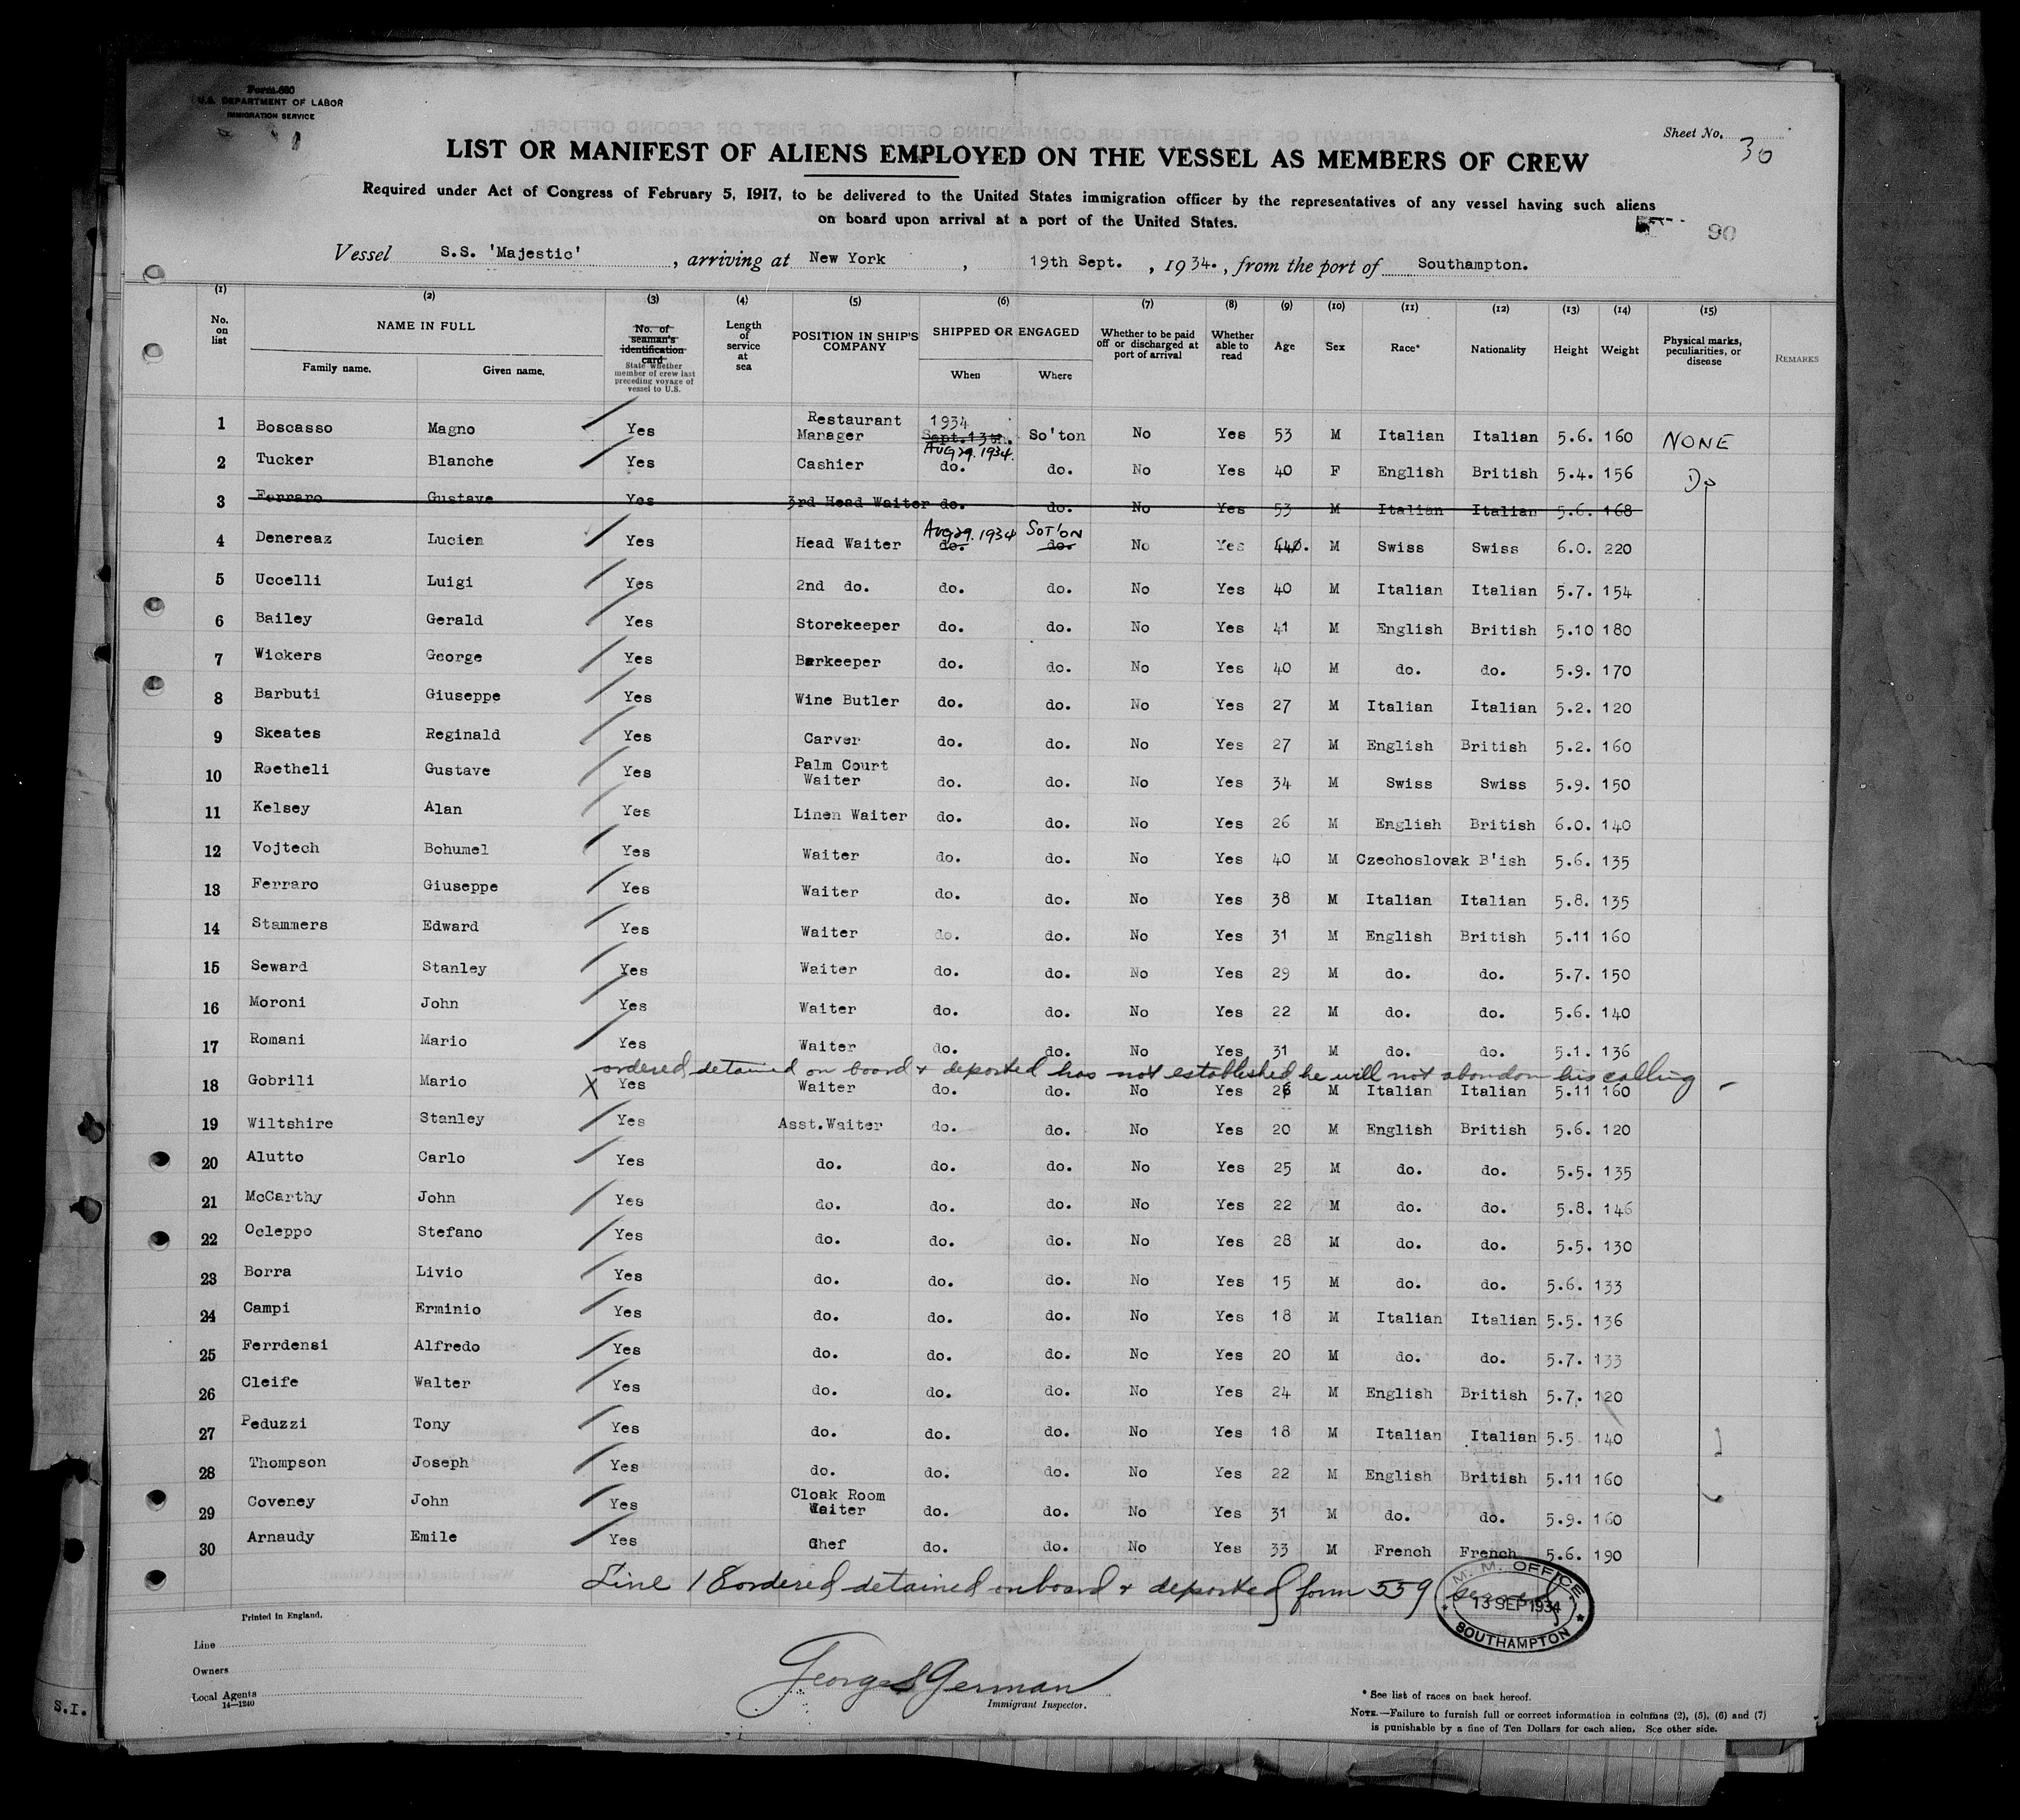 Form 680
U.S. DEPARTMENT OF LABOR
IMMIGRATION SERVICE
Sheet No. 30
LIST OR MANIFEST OF ALIENS EMPLOYED ON THE VESSEL AS MEMBERS OF CREW
Required under Act of Congress of February 5, 1917, to be delivered to the United States immigration officer by the representatives of any vessel having such aliens
on board upon arrival at a port of the United States.
90
Vessel S.S. 'Majestic' , arriving at New York , 19th Sept. , 1934. , from the port of Southampton.
(1) (2) (3) (4) (5) (6) (7) (8) (9) (10) (11) (12) (13) (14) (15)
No. on list NAME IN FULL Family name. Given name. No. of seaman's identification card State whether member of crew last preceding voyage of vessel to U.S. Length of service at sea POSITION IN SHIP'S COMPANY SHIPPED OR ENGAGED When Where Whether to be paid off or discharged at port of arrival Whether able to read Age Sex Race* Nationality Height Weight Physical marks, peculiarities, or disease REMARKS
1 Boscasso Magno Yes Restaurant Manager 1934 Sept.13th. Aug 29. 1934. So'ton No Yes 53 M Italian Italian 5.6. 160 NONE
2 Tucker Blanche Yes Cashier do. do. No Yes 40 F English British 5.4. 156 Do
3 Ferraro Gustave Yes 3rd Head Waiter do. do. No Yes 53 M Italian Italian 5.6. 168
4 Denereaz Lucien Yes Head Waiter Aug 29. 1934 do. SOT'ON do. No Yes M Swiss Swiss 6.0. 220
5 Uccelli Luigi Yes 2nd do. do. do. No Yes 40 M Italian Italian 5.7. 154
6 Bailey Gerald Yes Storekeeper do. do. No Yes 41 M English British 5.10 180
7 Wickers George Yes Barkeeper do. do. No Yes 40 M do. do. 5.9. 170
8 Barbuti Giuseppe Yes Wine Butler do. do. No Yes 27 M Italian Italian 5.2. 120
9 Skeates Reginald Yes Carver do. do. No Yes 27 M English British 5.2. 160
10 Roetheli Gustave Yes Palm Court Waiter do. do. No Yes 34 M Swiss Swiss 5.9. 150
11 Kelsey Alan Yes Linen Waiter do. do. No Yes 26 M English British 6.0. 140
12 Vojtech Bohumel Yes Waiter do. do. No Yes 40 M Czechoslovak B'ish 5.6. 135
13 Ferraro Giuseppe Yes Waiter do. do. No Yes 38 M Italian Italian 5.8. 135
14 Stammers Edward Yes Waiter do. do. No Yes 31 M English British 5.11 160
15 Seward Stanley Yes Waiter do. do. No Yes 29 M do. do. 5.7. 150
16 Moroni John Yes Waiter do. do. No Yes 22 M do. do. 5.6. 140
17 Romani Mario Yes Waiter do. do. No Yes 31 M do. do. 5.1. 136
ordered detained on board & deported has not established he will not abandon his calling
18 Gobrili Mario X Yes Waiter do. do. No Yes 26 M Italian Italian 5.11 160
19 Wiltshire Stanley Yes Asst.Waiter do. do. No Yes 20 M English British 5.6. 120
20 Alutto Carlo Yes do. do. do. No Yes 25 M do. do. 5.5. 135
21 McCarthy John Yes do. do. do. No Yes 22 M do. do. 5.8. 146
22 Ocleppo Stefano Yes do. do. do. No Yes 28 M do. do. 5.5. 130
23 Borra Livio Yes do. do. do. No Yes 15 M do. do. 5.6. 133
24 Campi Erminio Yes do. do. do. No Yes 18 M Italian Italian 5.5. 136
25 Ferrdensi Alfredo Yes do. do. do. No Yes 20 M do. do. 5.7. 133
26 Cleife Walter Yes do. do. do. No Yes 24 M English British 5.7. 120
27 Peduzzi Tony Yes do. do. do. No Yes 18 M Italian Italian 5.5 140
28 Thompson Joseph Yes do. do. do. No Yes 22 M English British 5.11 160
29 Coveney John Yes Cloak Room Waiter do. do. No Yes 31 M do. do. 5.9. 160
30 Arnaudy Emile Yes Chef do. do. No Yes 33 M French French 5.6. 190
Line 18 ordered detained on board & deported form 559 served
M. M. OFFICE
13 SEP 1934
SOUTHAMPTON
Printed in England.
Line
Owners
Local Agents
14—1240
George S German
Immigrant Inspector.
* See list of races on back hereof.
NOTE.—Failure to furnish full or correct information in columns (2), (5), (6) and (7)
is punishable by a fine of Ten Dollars for each alien. See other side.
S.I.